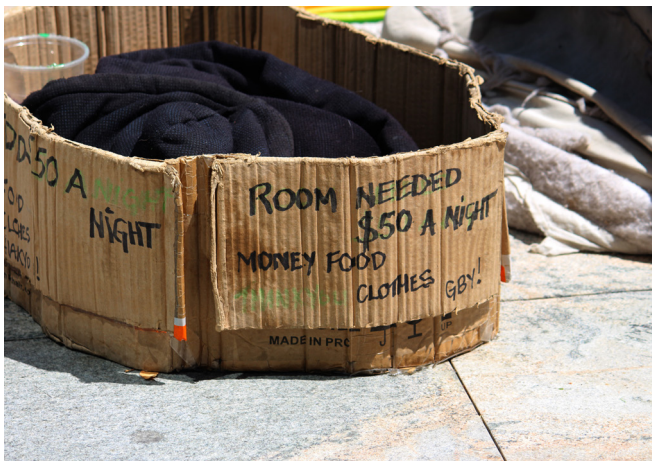 50 A
NIGHT
ROOM NEEDED
$50 A NIGHT
MONEY FOOD
CLOTHES GBY!
MADE IN PRC